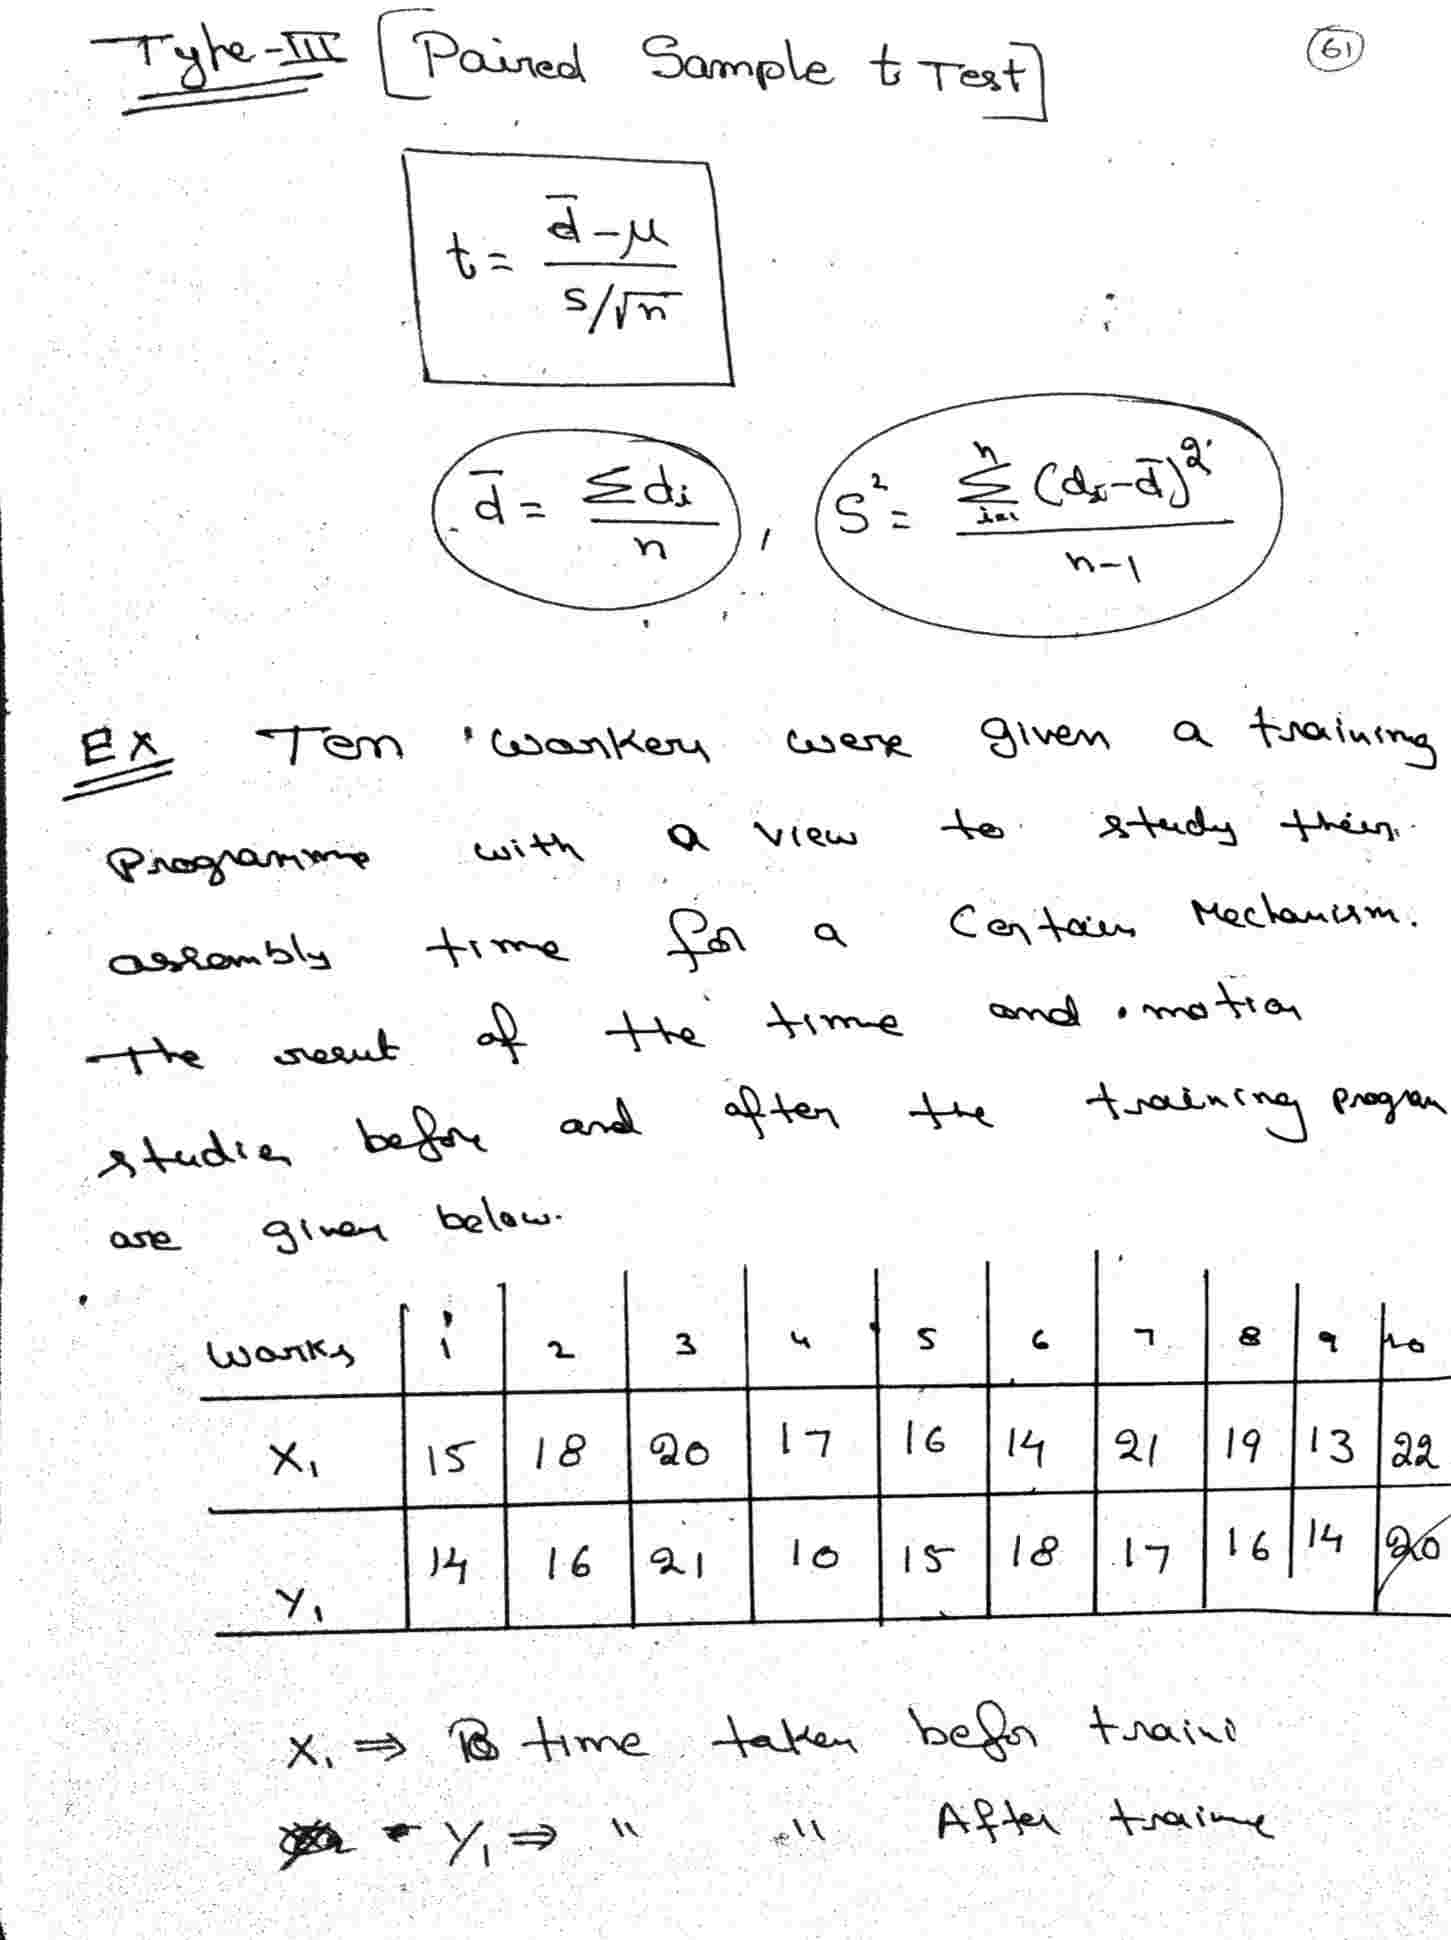 Type-III [Paired Sample t Test]
61
t = (d̄ - μ) / (s/√n)
d̄ = Σdi / n , S² = Σ(i=1 to n) (di - d̄)² / (n-1)
Ex Ten workers were given a training
Programme with a view to study their
assembly time for a certain Mechanism.
The result of the time and motion
studies before and after the training program
are given below.
Works 1 2 3 4 5 6 7 8 9 10
X₁ 15 18 20 17 16 14 21 19 13 22
Y₁ 14 16 21 10 15 18 17 16 14 20
X₁ ⇒ time taken befor traini
Y₁ ⇒ " " After traine